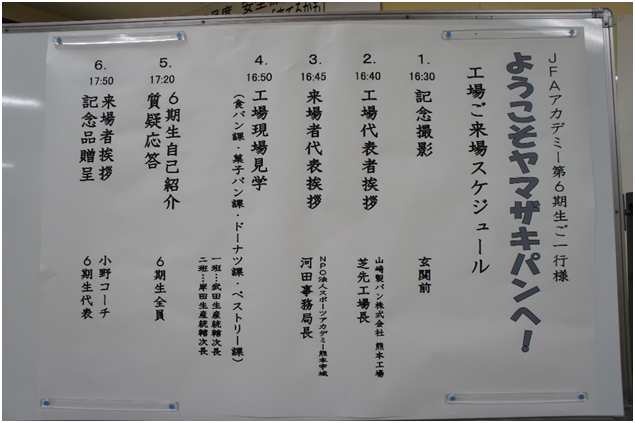 JFAアカデミー第6期生ご一行様
ようこそヤマザキパンへ！
工場ご来場スケジュール
1.
16:30
記念撮影
玄関前
2.
16:40
工場代表者挨拶
山崎製パン株式会社 熊本工場
芝先工場長
3.
16:45
来場者代表挨拶
NPO法人スポーツアカデミー熊本宇城
河田事務局長
4.
16:50
工場現場見学
（食パン課・菓子パン課・ドーナツ課・ペストリー課）
一班…武田生産統轄次長
二班…岸田生産統轄次長
5.
17:20
6期生自己紹介
質疑応答
6期生全員
6.
17:50
来場者挨拶
記念品贈呈
小野コーチ
6期生代表